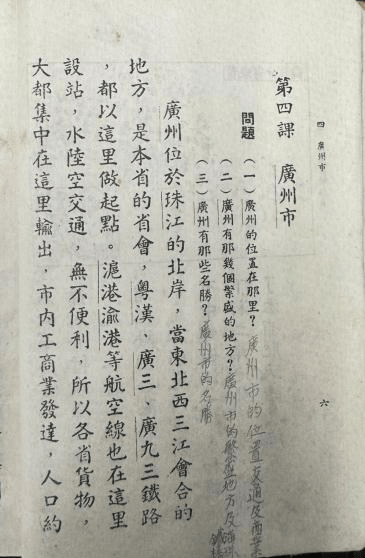 四 廣州市
六
第四課 廣州市
問題
（一）廣州的位置在那里？廣州市的位置交通及商業
（二）廣州有那幾個繁盛的地方？廣州市的繁盛地方及
（三）廣州有那些名勝？廣州市的名勝
廣州位於珠江的北岸，當東北西三江會合的
地方，是本省的省會，粵漢、廣三、廣九三鐵路
，都以這里做起點。滬港渝港等航空線也在這里
設站，水陸空交通，無不便利，所以各省貨物，
大都集中在這里輸出，市内工商業發達，人口約